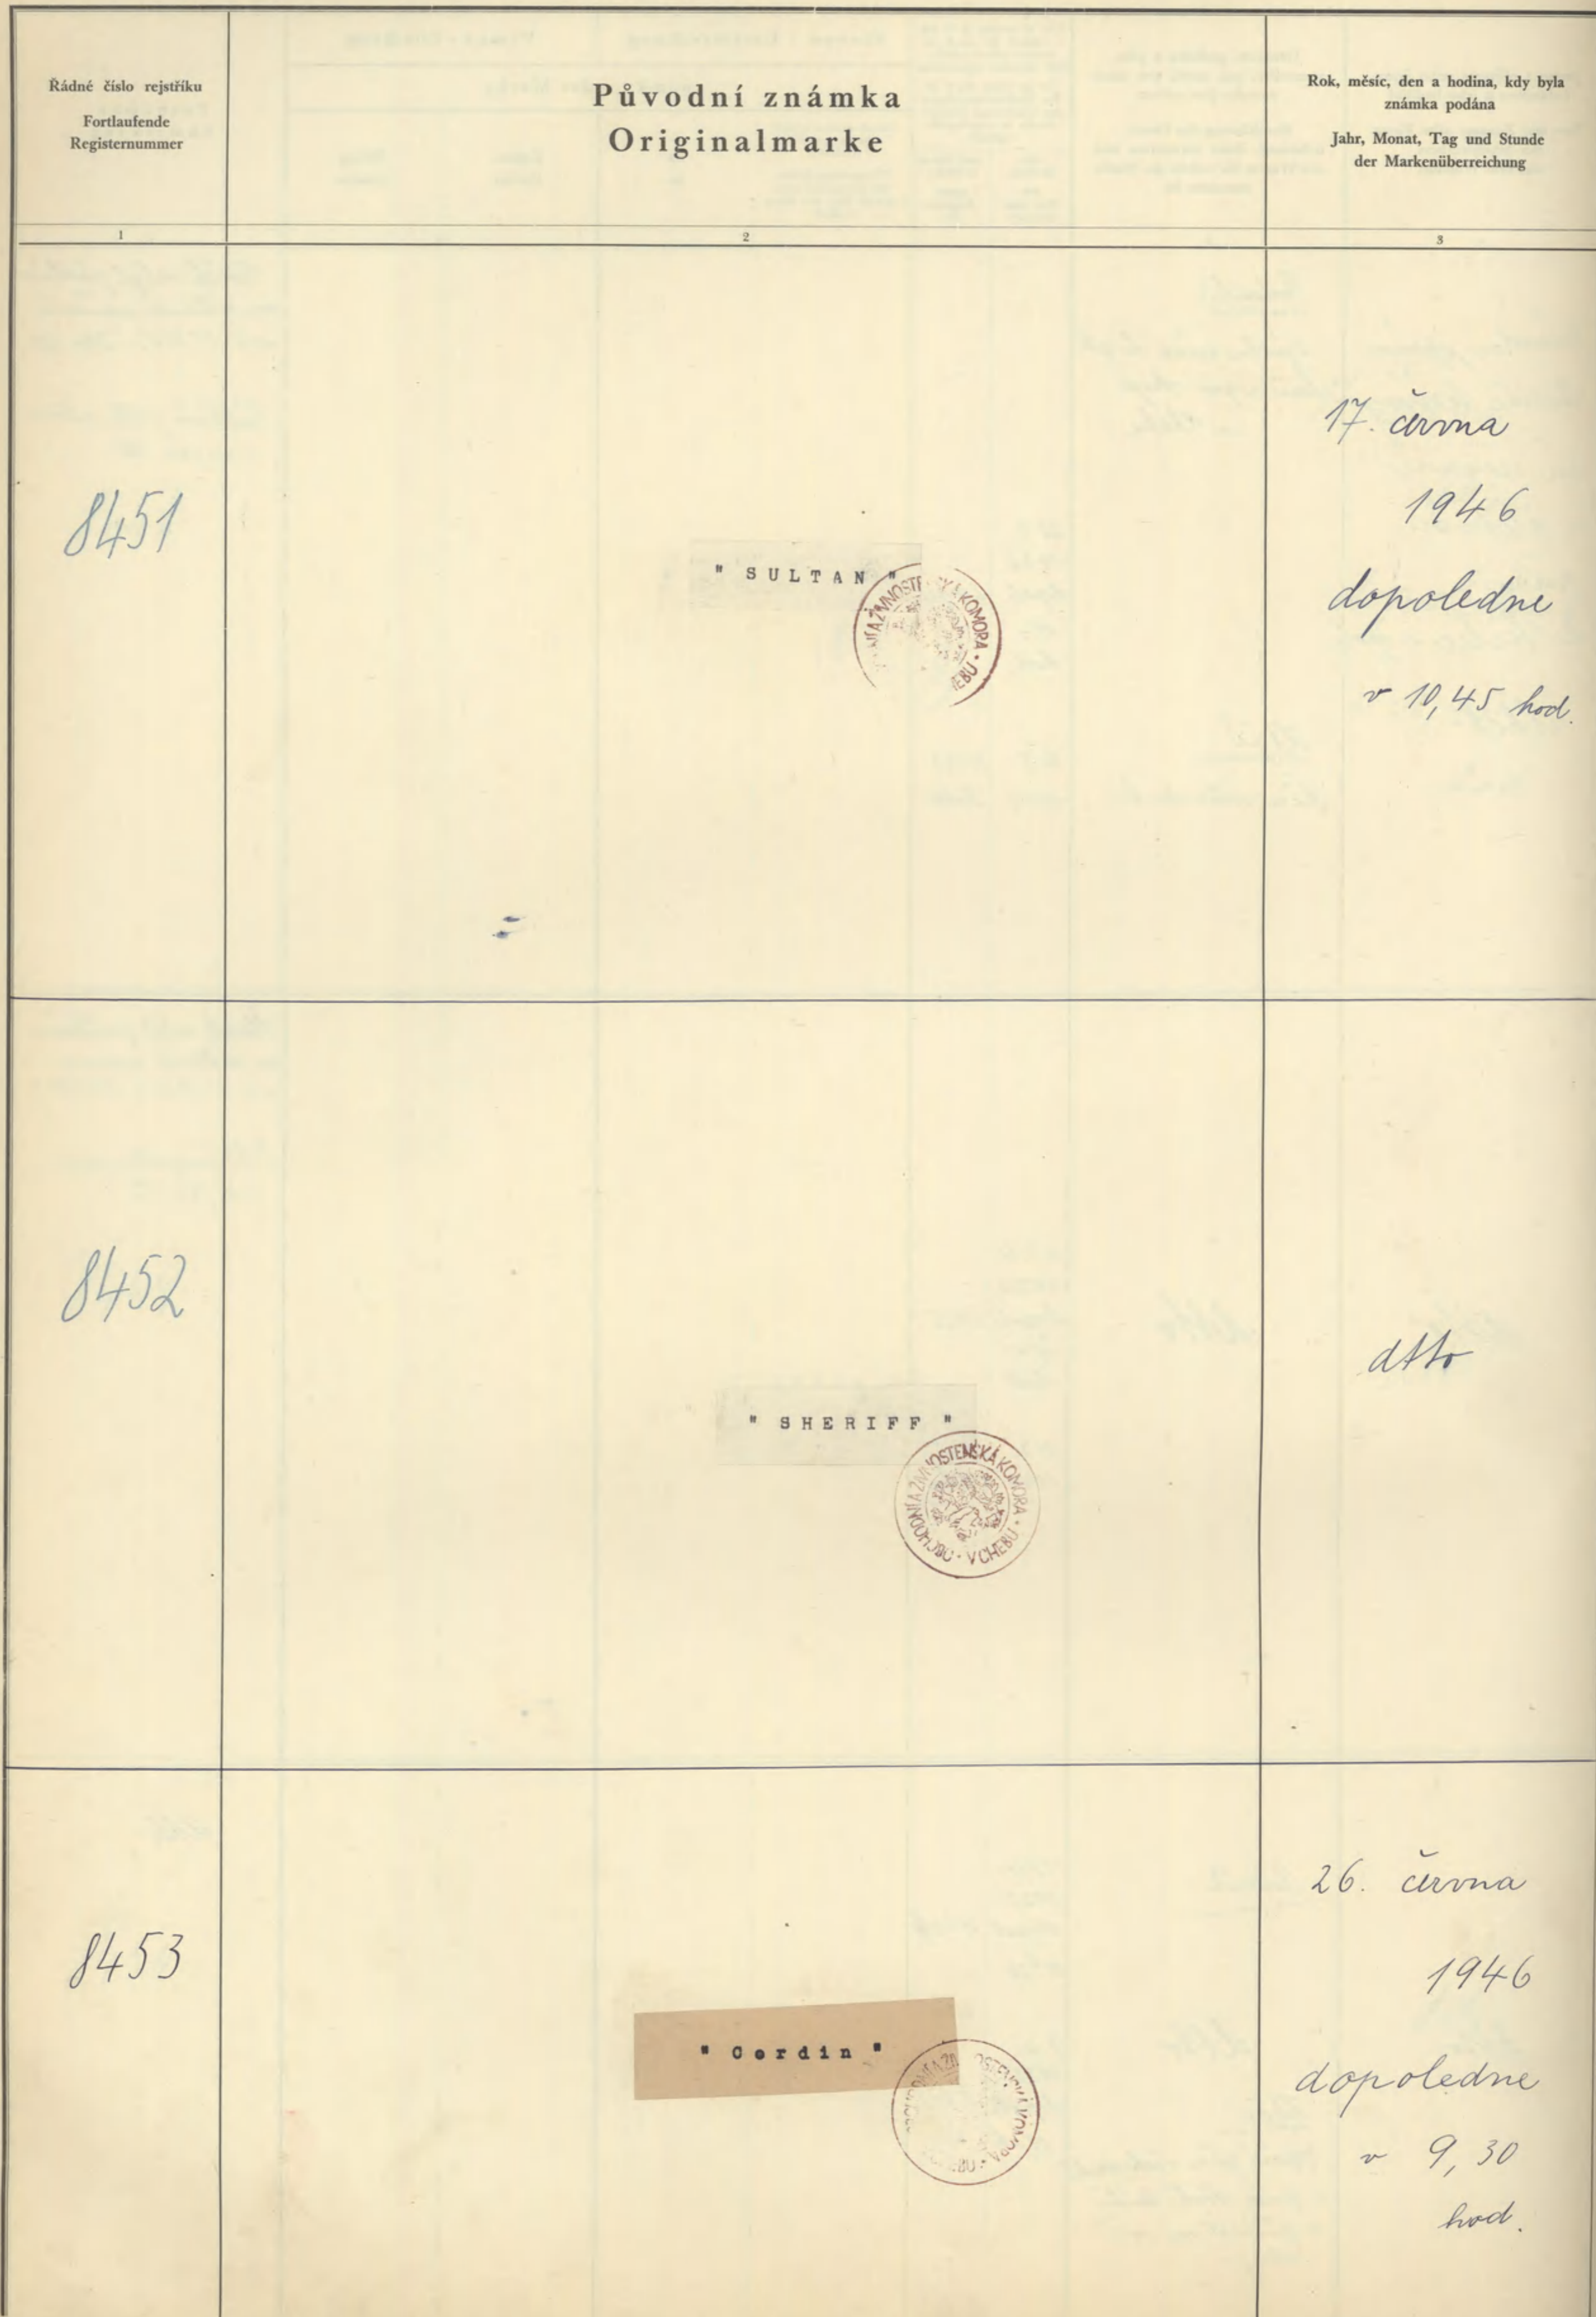 Řádné číslo rejstříku
Fortlaufende
Registernummer
Původní známka
Originalmarke
Rok, měsíc, den a hodina, kdy byla
známka podána
Jahr, Monat, Tag und Stunde
der Markenüberreichung
1
2
3
8451
" SULTAN "
ŽIVNOSTENSKÁ KOMORA
17. června
1946
dopoledne
v 10,45 hod.
8452
" SHERIFF "
OBCHODNÍ A ŽIVNOSTENSKÁ KOMORA · V CHEBU ·
dtto
8453
" Cordin "
OBCHODNÍ A ŽIVNOSTENSKÁ KOMORA
26. června
1946
dopoledne
v 9,30
hod.